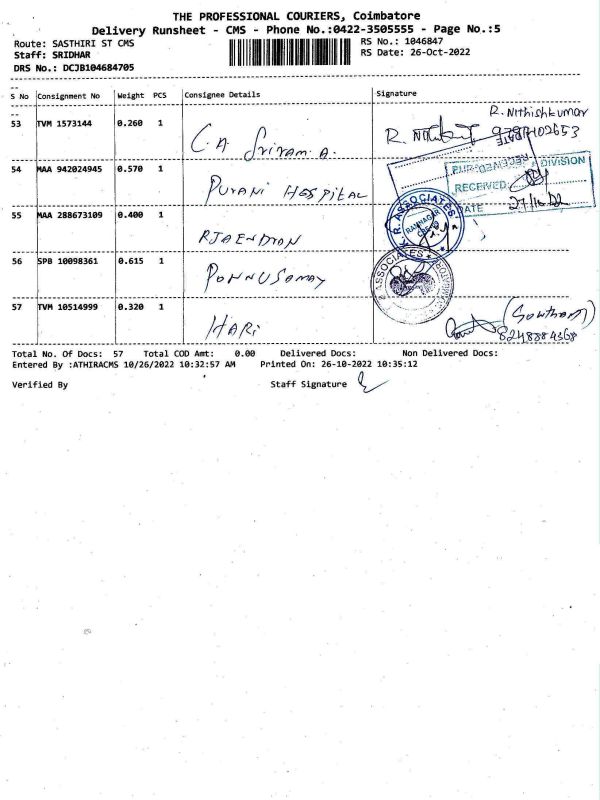 THE PROFESSIONAL COURIERS, Coimbatore
Delivery Runsheet - CMS - Phone No.:0422-3505555 - Page No.:5
Route: SASTHIRI ST CMS
RS No.: 1046847
Staff: SRIDHAR
RS Date: 26-Oct-2022
DRS No.: DCJB104684705
S No Consignment No Weight PCS Consignee Details Signature
R. Nithishkumar
53 TVM 1573144 0.260 1 C.A Sriram.A.
54 MAA 942024945 0.570 1 PURANI HOSPITAL
DIVISION
RECEIVED
DATE
55 MAA 288673109 0.400 1
K.R. ASSOCIATES
RAMNAGAR
CBE-9
56 SPB 10098361 0.615 1 PONNUSAMAY
ASSOCIATES
57 TVM 10514999 0.320 1 HARI
(Gowtham)
8248884368
Total No. Of Docs: 57 Total COD Amt: 0.00 Delivered Docs: Non Delivered Docs:
Entered By :ATHIRACMS 10/26/2022 10:32:57 AM Printed On: 26-10-2022 10:35:12
Verified By Staff Signature